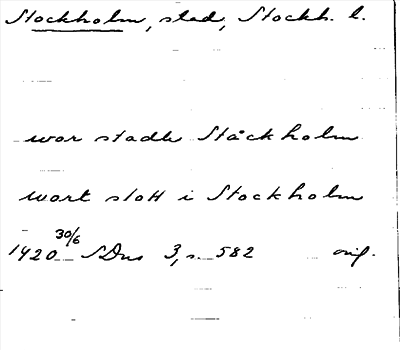 Stockholm, stad, Stockh. l.
wor stadh Ståckholm
wart slott i Stockholm
1420 30/6 SDns 3, s. 582 orig.